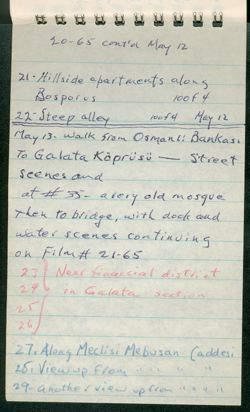 20-65 cont'd May 12
21-Hillside apartments along
Bosporus 100f4
22-Steep alley 100f4 May 12
May 13. Walk from Osmanli Bankasi
To Galata Köprüsü — Street
scenes and
at #35- a very old mosque
Then to bridge, with dock and
water scenes continuing
on Film # 21-65
23 } Near financial district
24 in Galata section
25
26
27. Along Meclisi Mebusan (addesi
28. View up from " " "
29. Another view up from " " " "